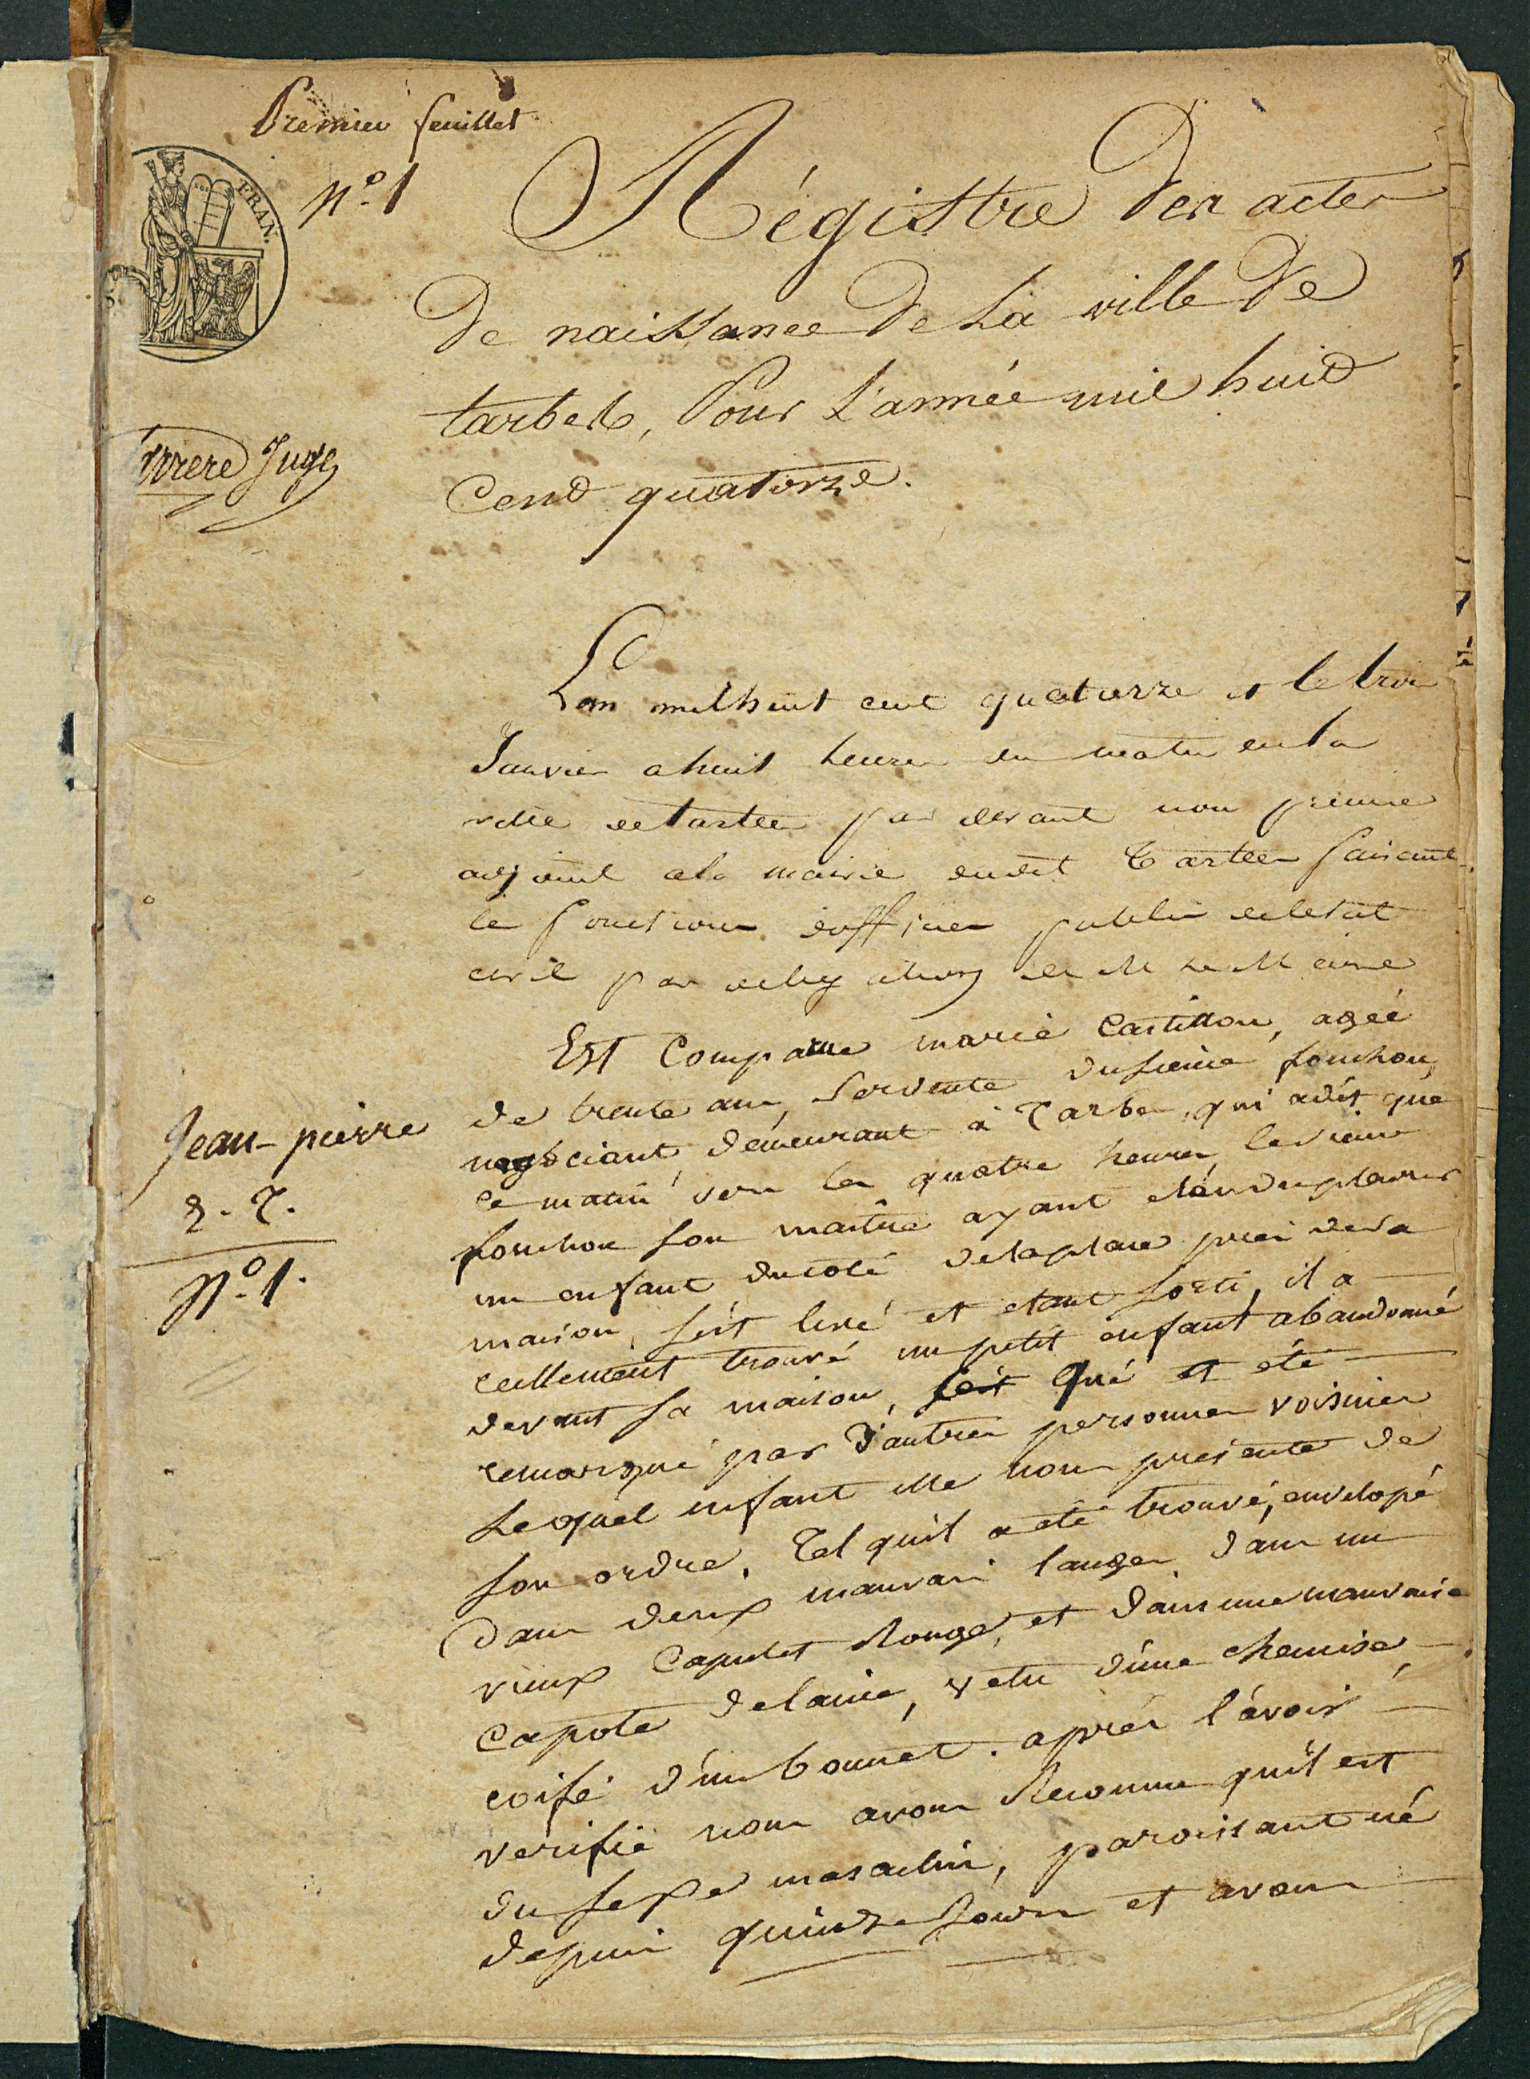 Premier feuillet
N.o 1
FRAN.
Régistre des actes
De naissance De La ville De
tarbes, Pour L'année mil huid
Cend quatorze.
Juge
Lan milhuit cent quatorze et le trois
Janvier a huit heures du matin en la
ville de tarbes par devant nous premier
adjoint ala mairie dudit Tarbes faisant
les fonctions dofficier public deletat
civil par delegation de M Le Maire
Est Comparue marie Castillon, agéé
de trente ans, Servente dusieur fonchon,
negociant demeurant à Tarbes, qui adit que
ce matin vers les quatre heures lesieur
fonchon son maitre ayant etendu pleurer
un enfant ducoté delaplace près de sa
maison, sést levé et etant sorti, il a
reellement trouvé un petit enfant abandonné
devant sa maison, qui a été
remarqué par d'autres personnes voisines
Lequel enfant elle nous presente de
son ordre. Tel quil a eté trouvé, envelopé
Dans deux mauvais langes dans un
vieux Capulet Rouge, et dans une mauvaise
Capote de laine, vetu d'une chemise,
coifé d'un bonnet. aprés l'avoir
verifié nous avons Reconnu quil est
du sexe masculin, paroissant né
depuis quinze Jours et avons
Jean-pierre
E. T.
N.o 1.